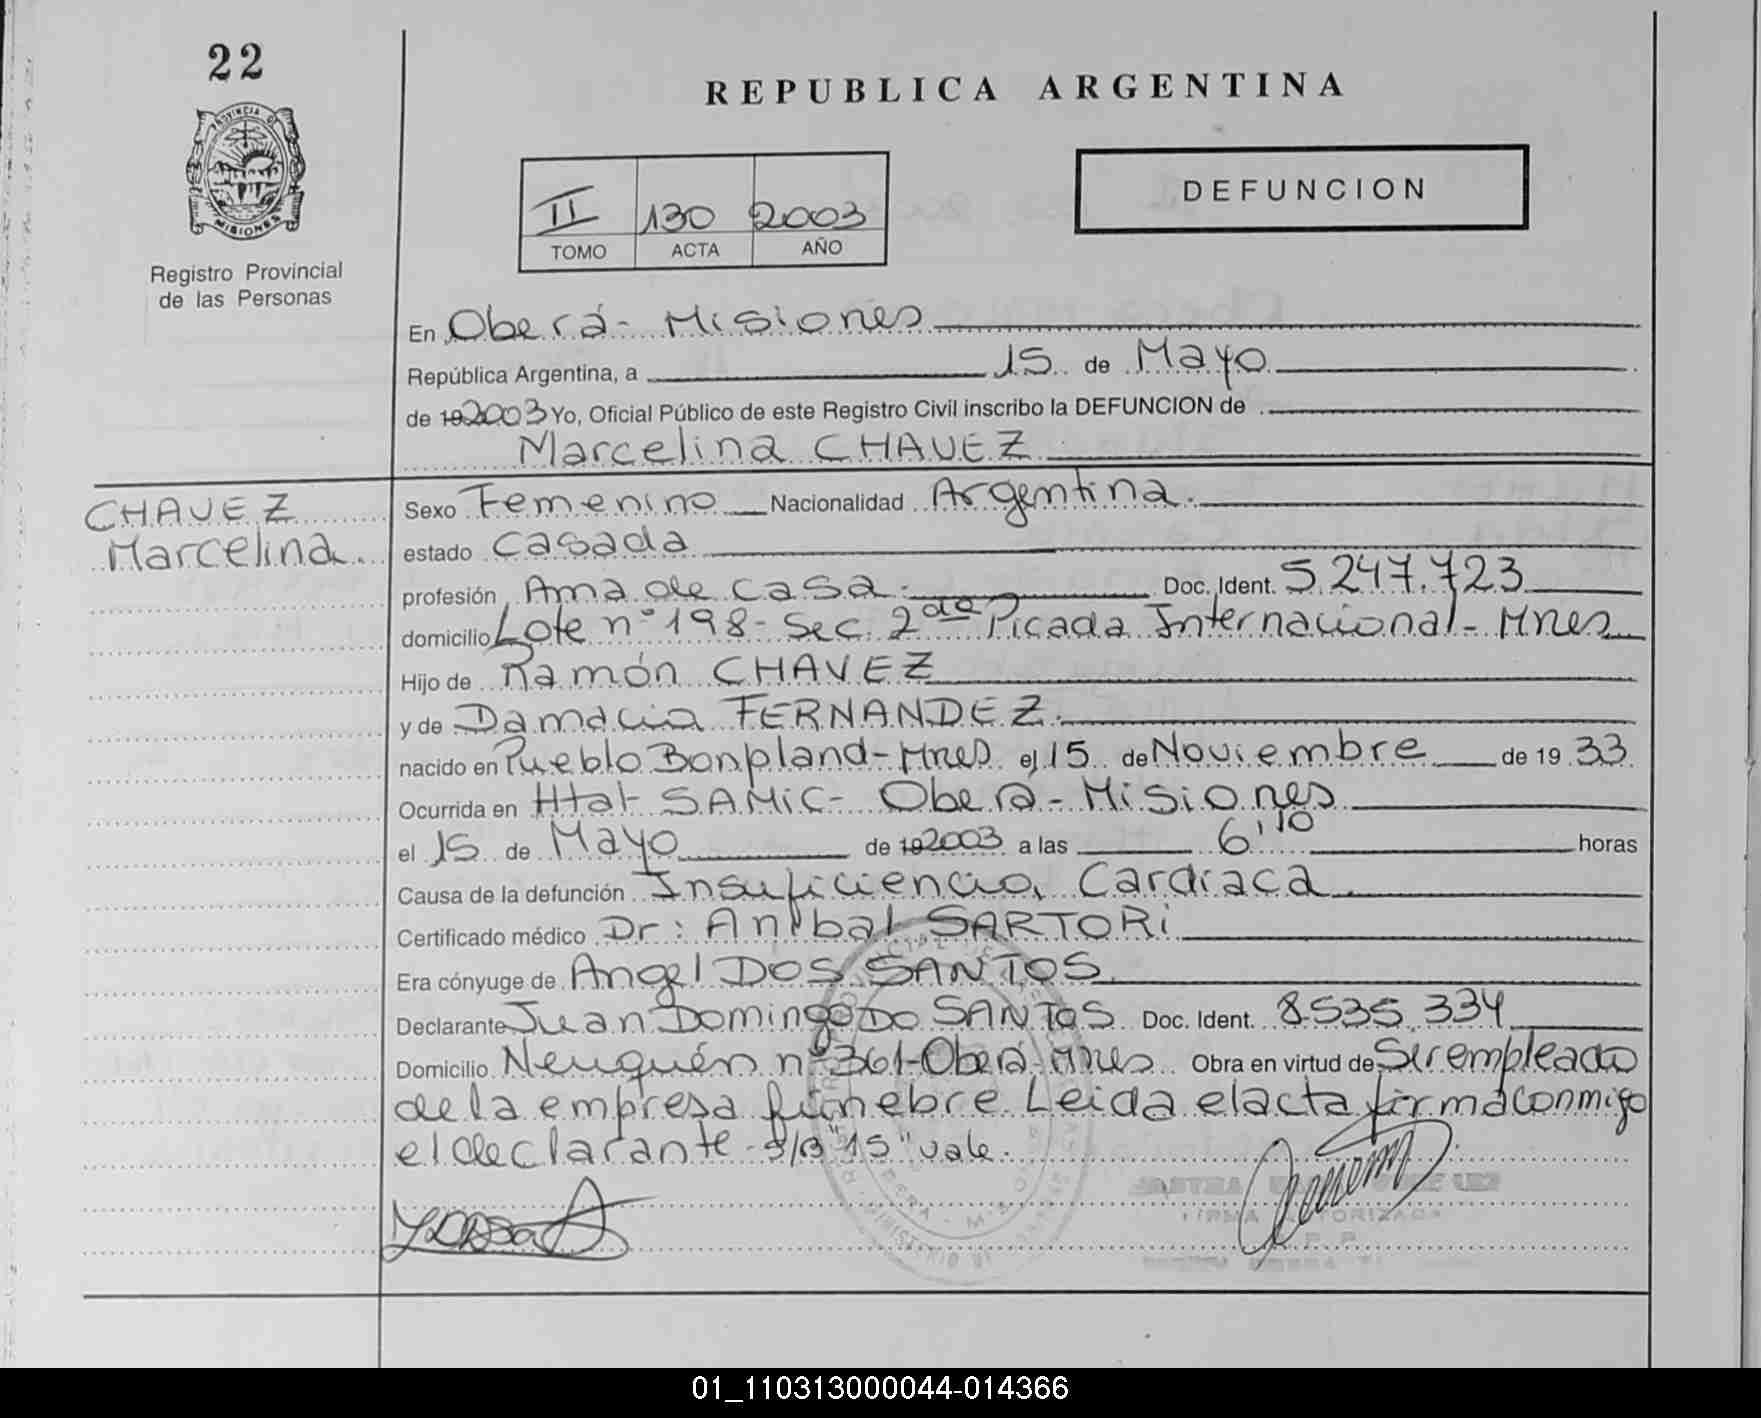 22
REPUBLICA ARGENTINA
PROVINCIA DE
MISIONES
II 130 2003
TOMO ACTA AÑO
DEFUNCION
Registro Provincial
de las Personas
En Oberá - Misiones
República Argentina, a 15 de Mayo
de 19 2003 Yo, Oficial Público de este Registro Civil inscribo la DEFUNCION de
Marcelina CHAVEZ
CHAVEZ
Marcelina
Sexo Femenino Nacionalidad Argentina.
estado Casada
profesión Ama de casa. Doc. Ident. 5.247.723
domicilio Lote nº 198 - Sec. 2da Picada Internacional - Mnes
Hijo de Ramón CHAVEZ
y de Damacia FERNANDEZ.
nacido en Pueblo Bonpland - Mnes el 15 de Noviembre de 19 33
Ocurrida en Htal SAMIC - Oberá - Misiones
el 15 de Mayo de 19 2003 a las 6'10 horas
Causa de la defunción Insuficiencia Cardiaca.
Certificado médico Dr: Anibal SARTORI
Era cónyuge de Angel DOS SANTOS
Declarante Juan Domingo DO SANTOS Doc. Ident. 8535.334
Domicilio Neuquén nº 361 - Oberá - Mnes Obra en virtud de Ser empleado
de la empresa fúnebre Leida el acta firma conmigo
el declarante - S/B "15" vale.
01_110313000044-014366